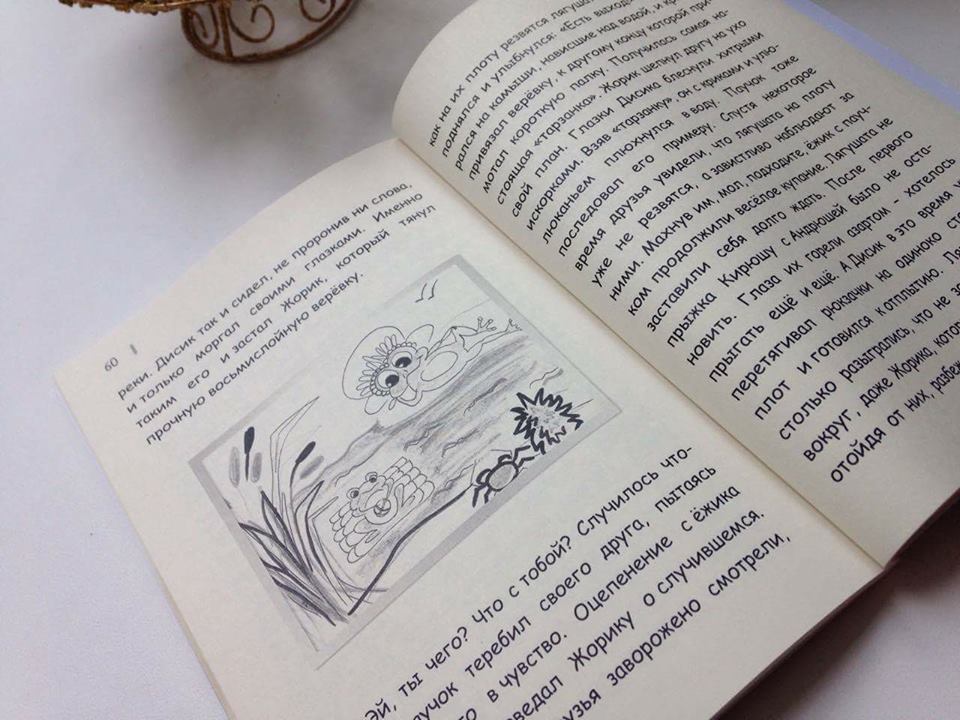 60
реки. Дисик так и сидел, не проронив ни слова,
и только моргал своими глазками. Именно
таким его и застал Жорик, который тянул
прочную восьмислойную верёвку.
Эй, ты чего? Что с тобой? Случилось что-
аучок теребил своего друга, пытаясь
в чувство. Оцепенение с ёжика
ведал Жорику о случившемся.
узья заворожено смотрели,
как на их плоту резвятся лягуша
поднялся и улыбнулся: «Есть выход
рался на камыши, нависшие над водой, и кр
привязал верёвку, к другому концу которой при-
мотал короткую палку. Получилась самая на-
стоящая «тарзанка». Жорик шепнул другу на ухо
свой план. Глазки Дисика блеснули хитрыми
искорками. Взяв «тарзанку», он с криками и улю-
люканьем плюхнулся в воду. Паучок тоже
последовал его примеру. Спустя некоторое
время друзья увидели, что лягушата на плоту
уже не резвятся, а завистливо наблюдают за
ними. Махнув им, мол, подходите, ёжик с пауч-
ком продолжили весёлое купание. Лягушата не
заставили себя долго ждать. После первого
прыжка Кирюшу с Андрюшей было не оста-
новить. Глаза их горели азартом – хотелось
прыгать ещё и ещё. А Дисик в это время у
перетягивал рюкзачки на одиноко ст
плот и готовился к отплытию. Ля
столько разыгрались, что не за
вокруг, даже Жорика, котор
отойдя от них, разбеж